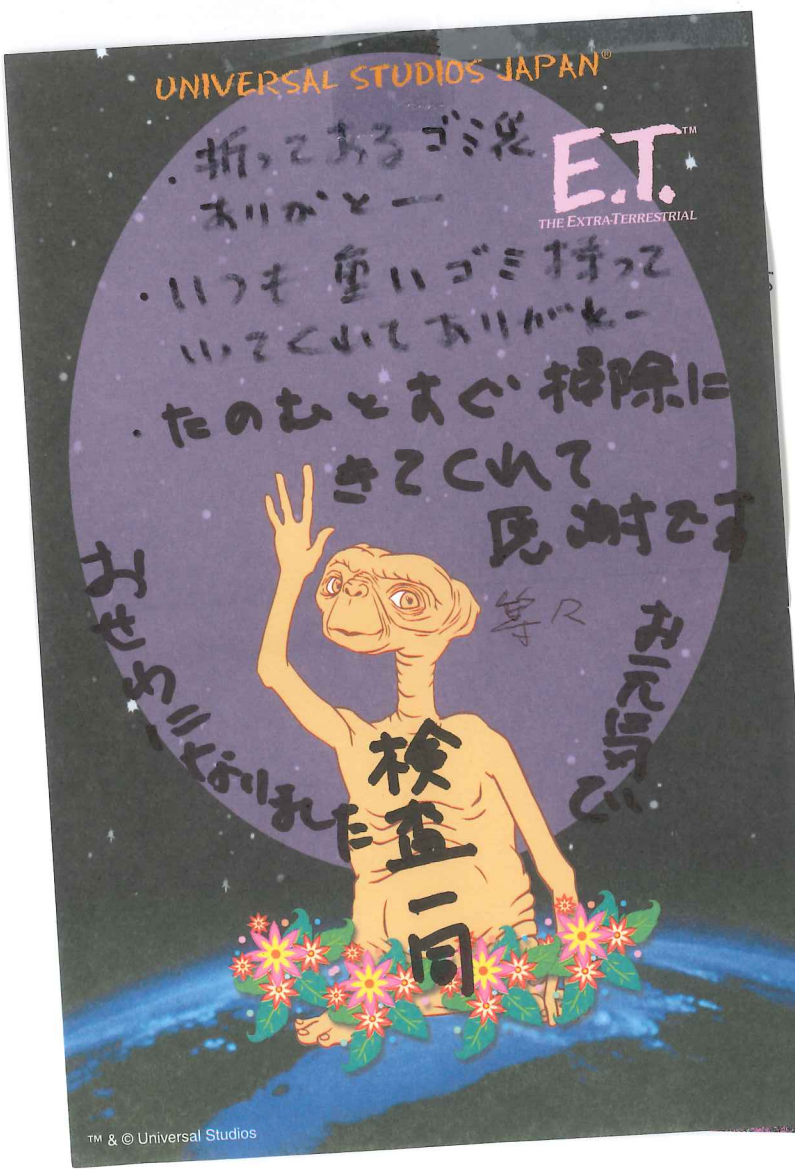 UNIVERSAL STUDIOS JAPAN®
E.T.™
THE EXTRA-TERRESTRIAL
・折ってあるゴミ袋
ありがとー
・いつも重いゴミ持って
いってくれてありがとー
・たのむとすぐ掃除に
きてくれて
感謝です
おせわになりました
お元気で
検査一同
™ & © Universal Studios